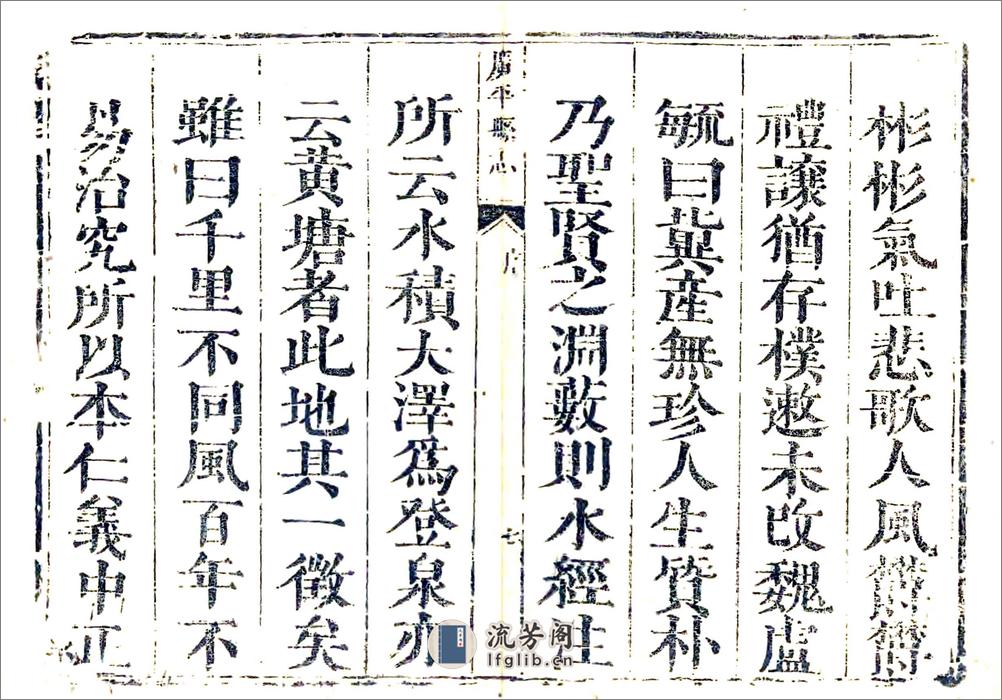 彬彬氣吐悲歌人風
禮讓猶存樸遬未改魏盧
毓曰冀産無珍人生質朴
乃聖賢之淵藪則水經註
廣平縣志
序
七
所云水積大澤爲登泉亦
云黄塘者此地其一徵矣
雖曰千里不同風百年不
易治究所以本仁義中正
流芳阁
lfglib.cn